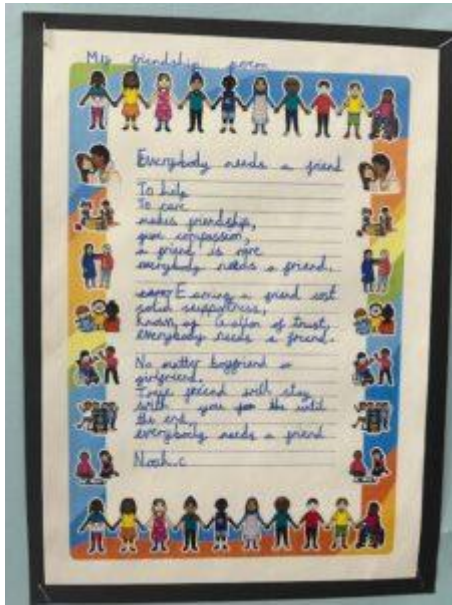 My friendship poem
Everybody needs a friend
To help
To care
makes friendship,
give compassion,
a friend is rare
everybody needs a friend.
a friend
solid supportress,
of trust,
everybody needs a friend.
No matter boyfriend or
girlfreend.
freend will stay
with you for the until
the end
everybody needs a friend
Noah.c